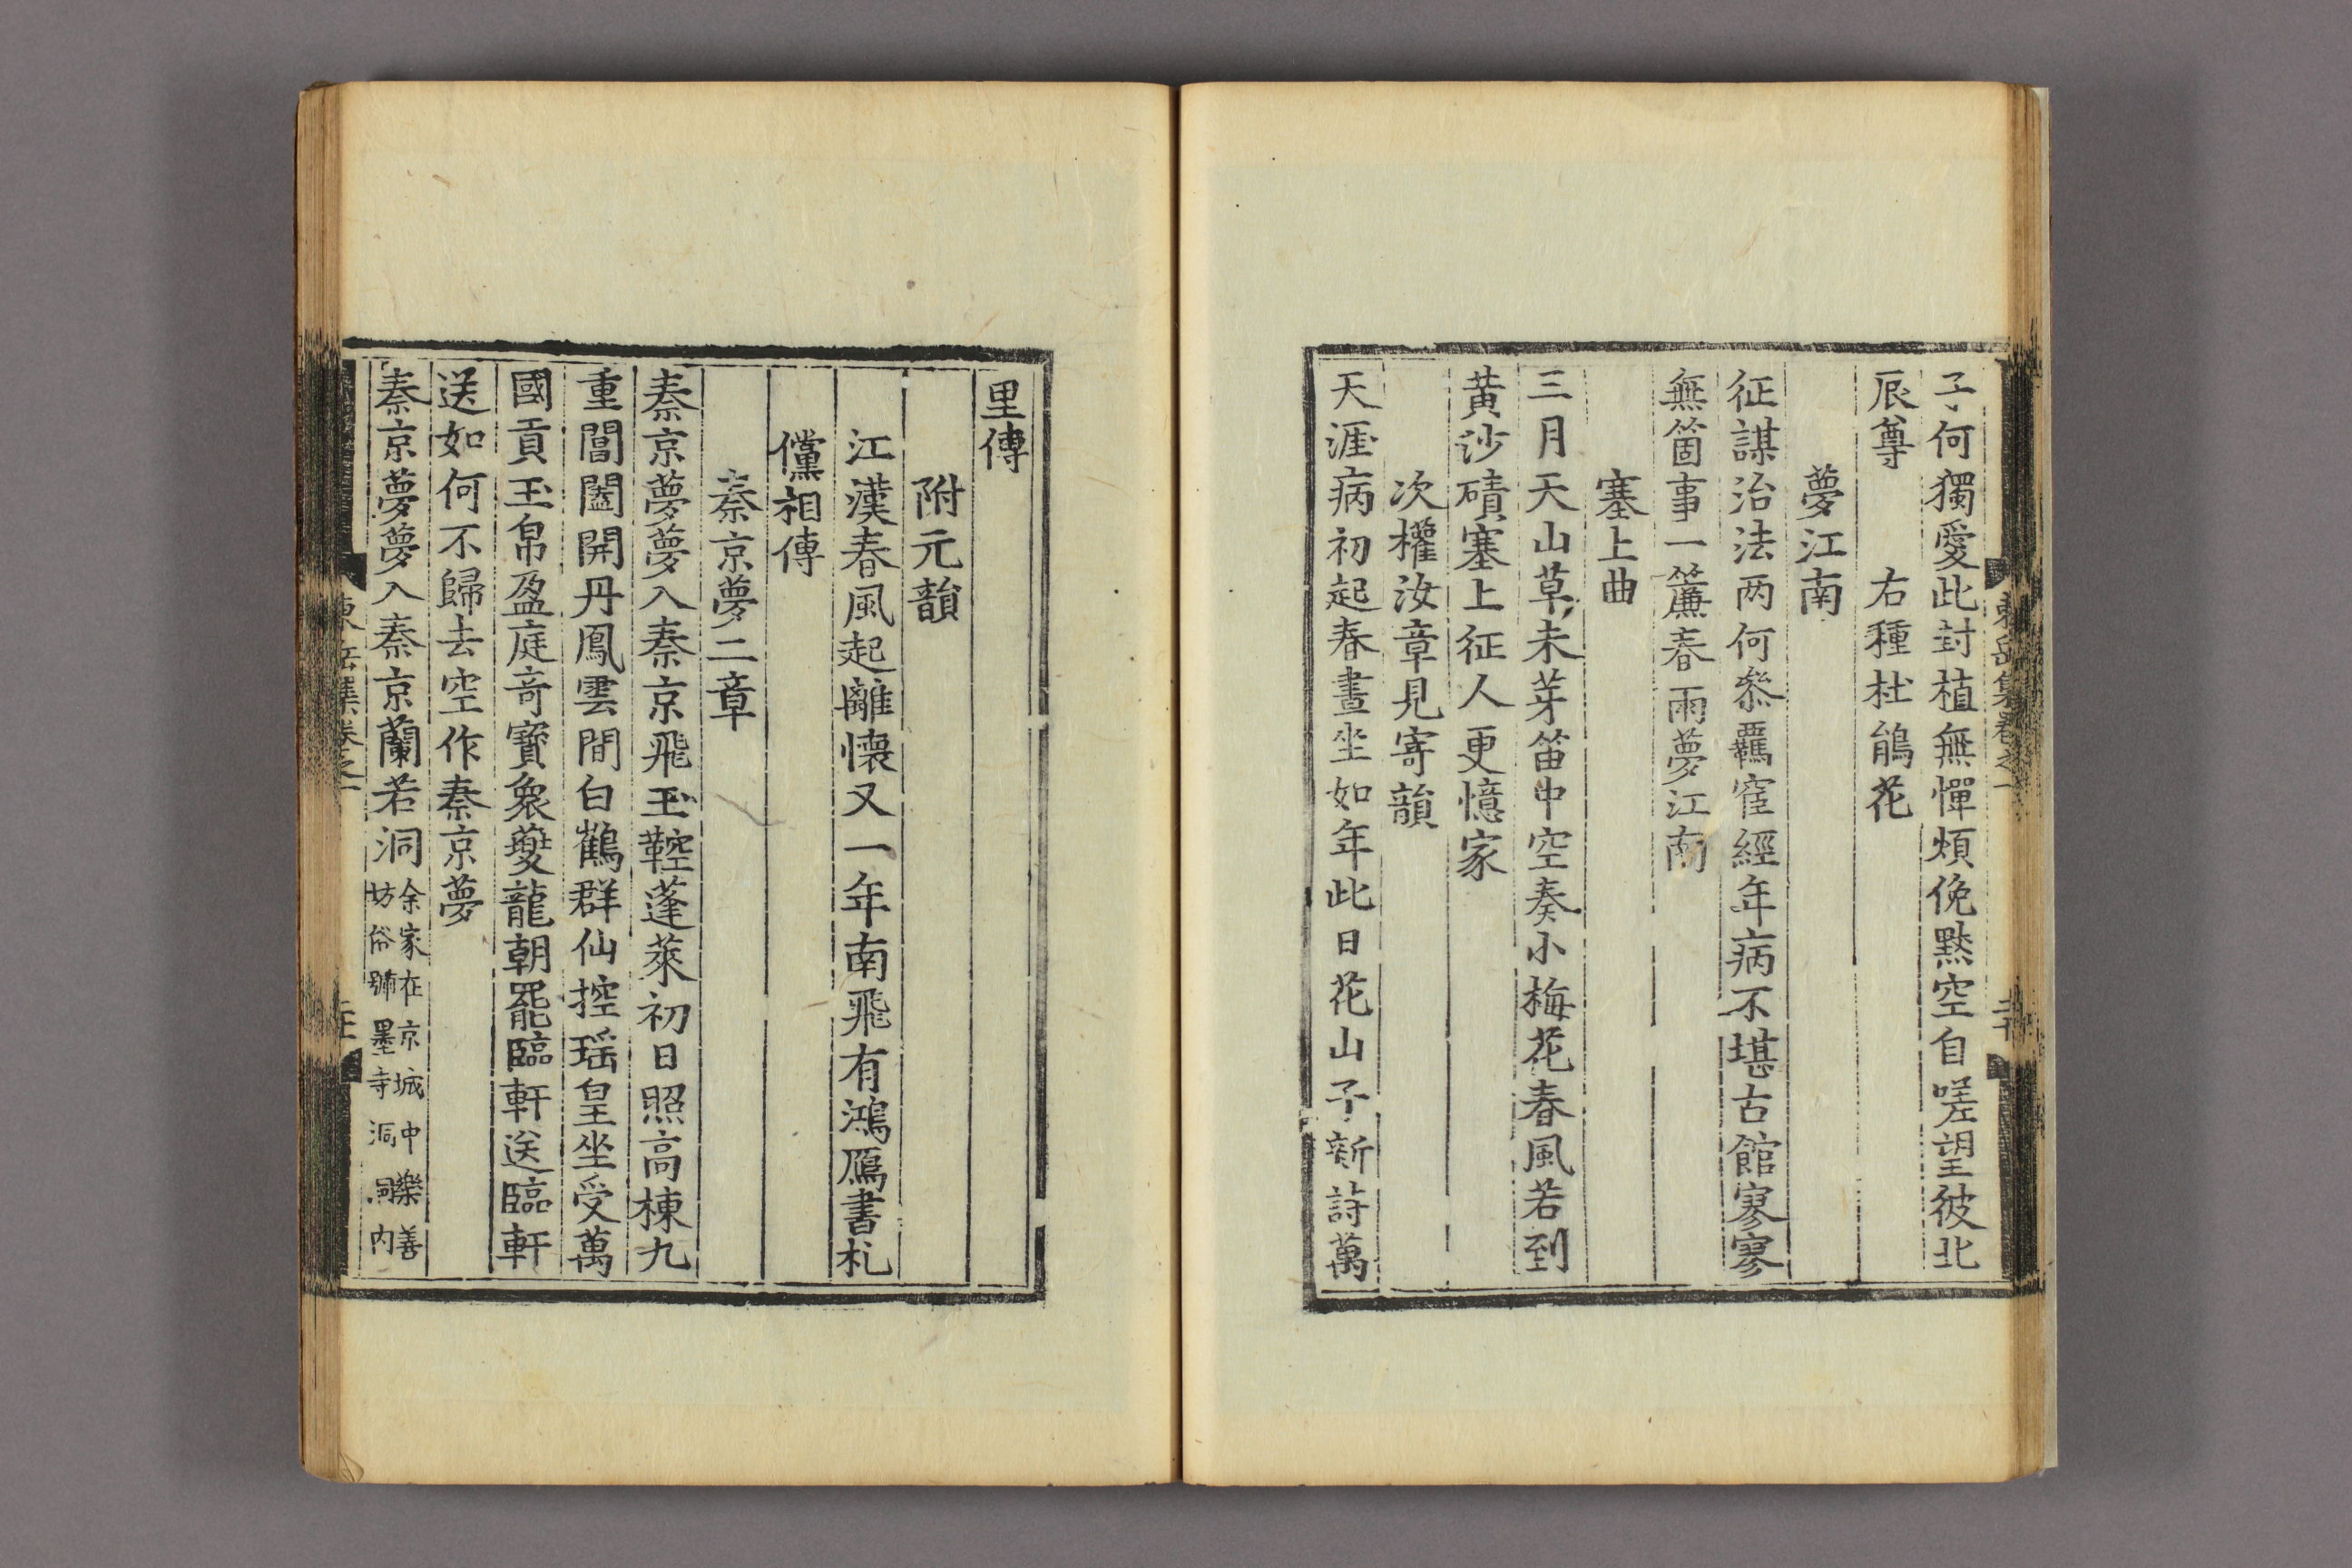 子何獨愛此封植無憚煩俛黙空自嗟望彼北
辰尊　　右種杜鵑花
夢江南
征謀治法两何叅羈窑經年病不堪古館寥寥
無箇事一簾春雨夢江南
塞上曲
三月天山草未芽笛中空奏小梅花春風若到
黄沙磧塞上征人更憶家
次權汝章見寄韻
天涯病初起春晝坐如年此日花山子新詩萬
里傳
附元韻
江漢春風起離懷又一年南飛有鴻鴈書札
儻相傳
秦京夢二章
秦京夢夢入秦京飛玉鞚蓬萊初日照高棟九
重閶闔開丹鳳雲間白鶴群仙控瑶皇坐受萬
國貢玉帛盈庭竒寶衆夔龍朝罷臨軒送臨軒
送如何不歸去空作秦京夢
秦京夢夢入秦京蘭若洞
余家在京城中樂善
坊俗號墨寺洞洞内